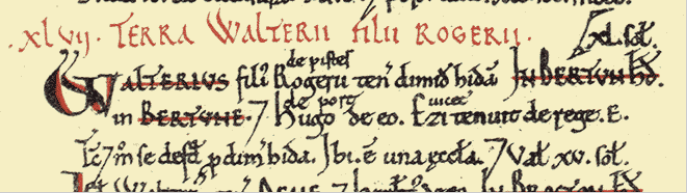 .xlvij. TERRA WALTERII filii ROGERII. xl. sol.
de pistes
WALTERIVS fili' Rogerii ten' dimid' hidā IN BERTVN HD.
de port uicec'
in BERTVNE. 7 Hugo de eo. Ezi tenuit de rege. E.
Tc' 7 m' se defd' p dim' hida. Ibi. ē una æccła. 7 Vał xv. soł.